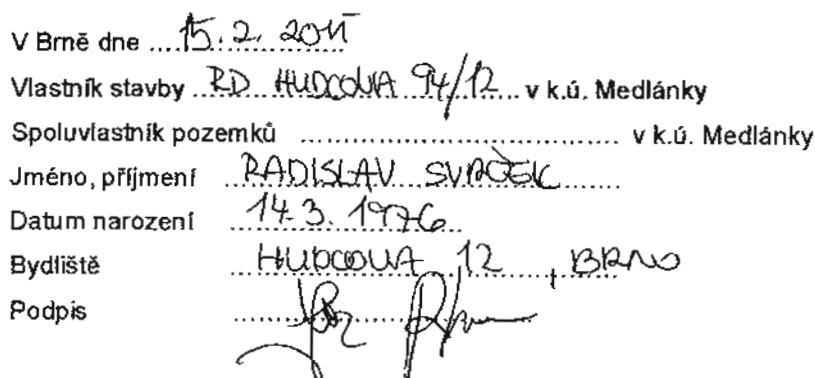 V Brně dne ....15. 2. 2011
Vlastník stavby ..RD HUDCOVA 94/12.... v k.ú. Medlánky
Spoluvlastník pozemků .................................. v k.ú. Medlánky
Jméno, příjmení RADISLAV SVAČEK
Datum narození 14.3. 1976
Bydliště HUDCOVA 12, BRNO
Podpis